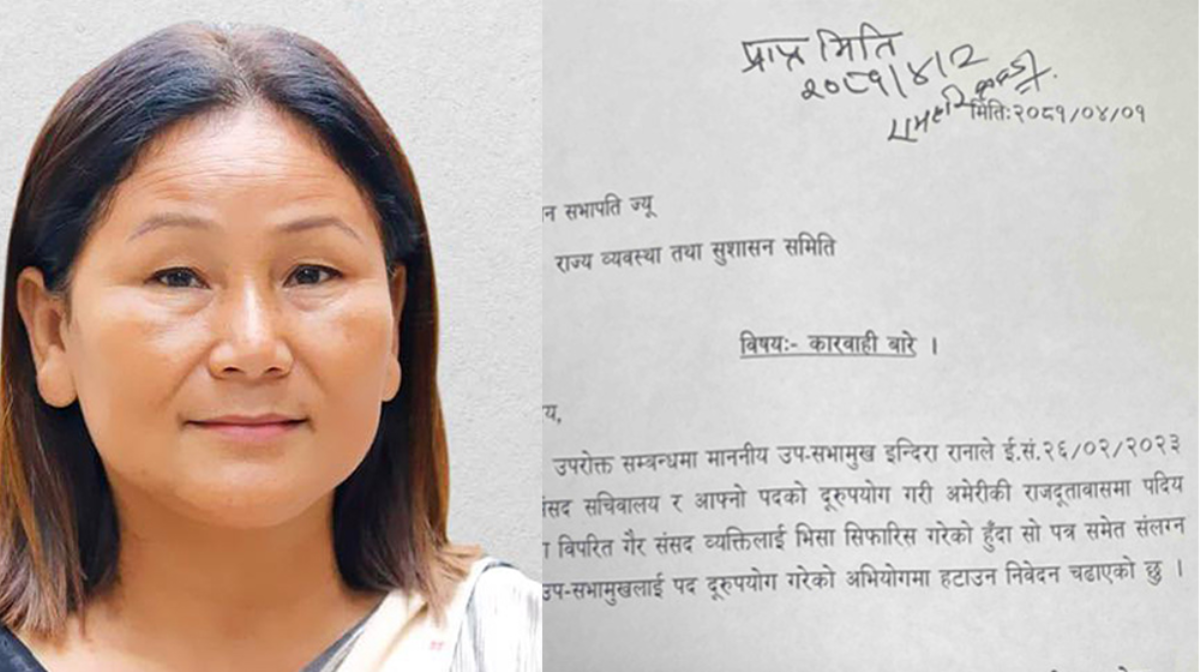 प्राप्त मिति
२०८१/४/२
मिति:२०८१/०४/०१
न सभापति ज्यू
राज्य व्यवस्था तथा सुशासन समिति
विषय:- कारवाही बारे ।
य,
उपरोक्त सम्बन्धमा माननीय उप-सभामुख इन्दिरा रानाले ई.सं.२६/०२/२०२३
संसद सचिवालय र आफ्नो पदको दूरुपयोग गरी अमेरीकी राजदूतावासमा पदिय
विपरित गैर संसद व्यक्तिलाई भिसा सिफारिस गरेको हुँदा सो पत्र समेत संलग्न
उप-सभामुखलाई पद दूरुपयोग गरेको अभियोगमा हटाउन निवेदन चढाएको छु ।